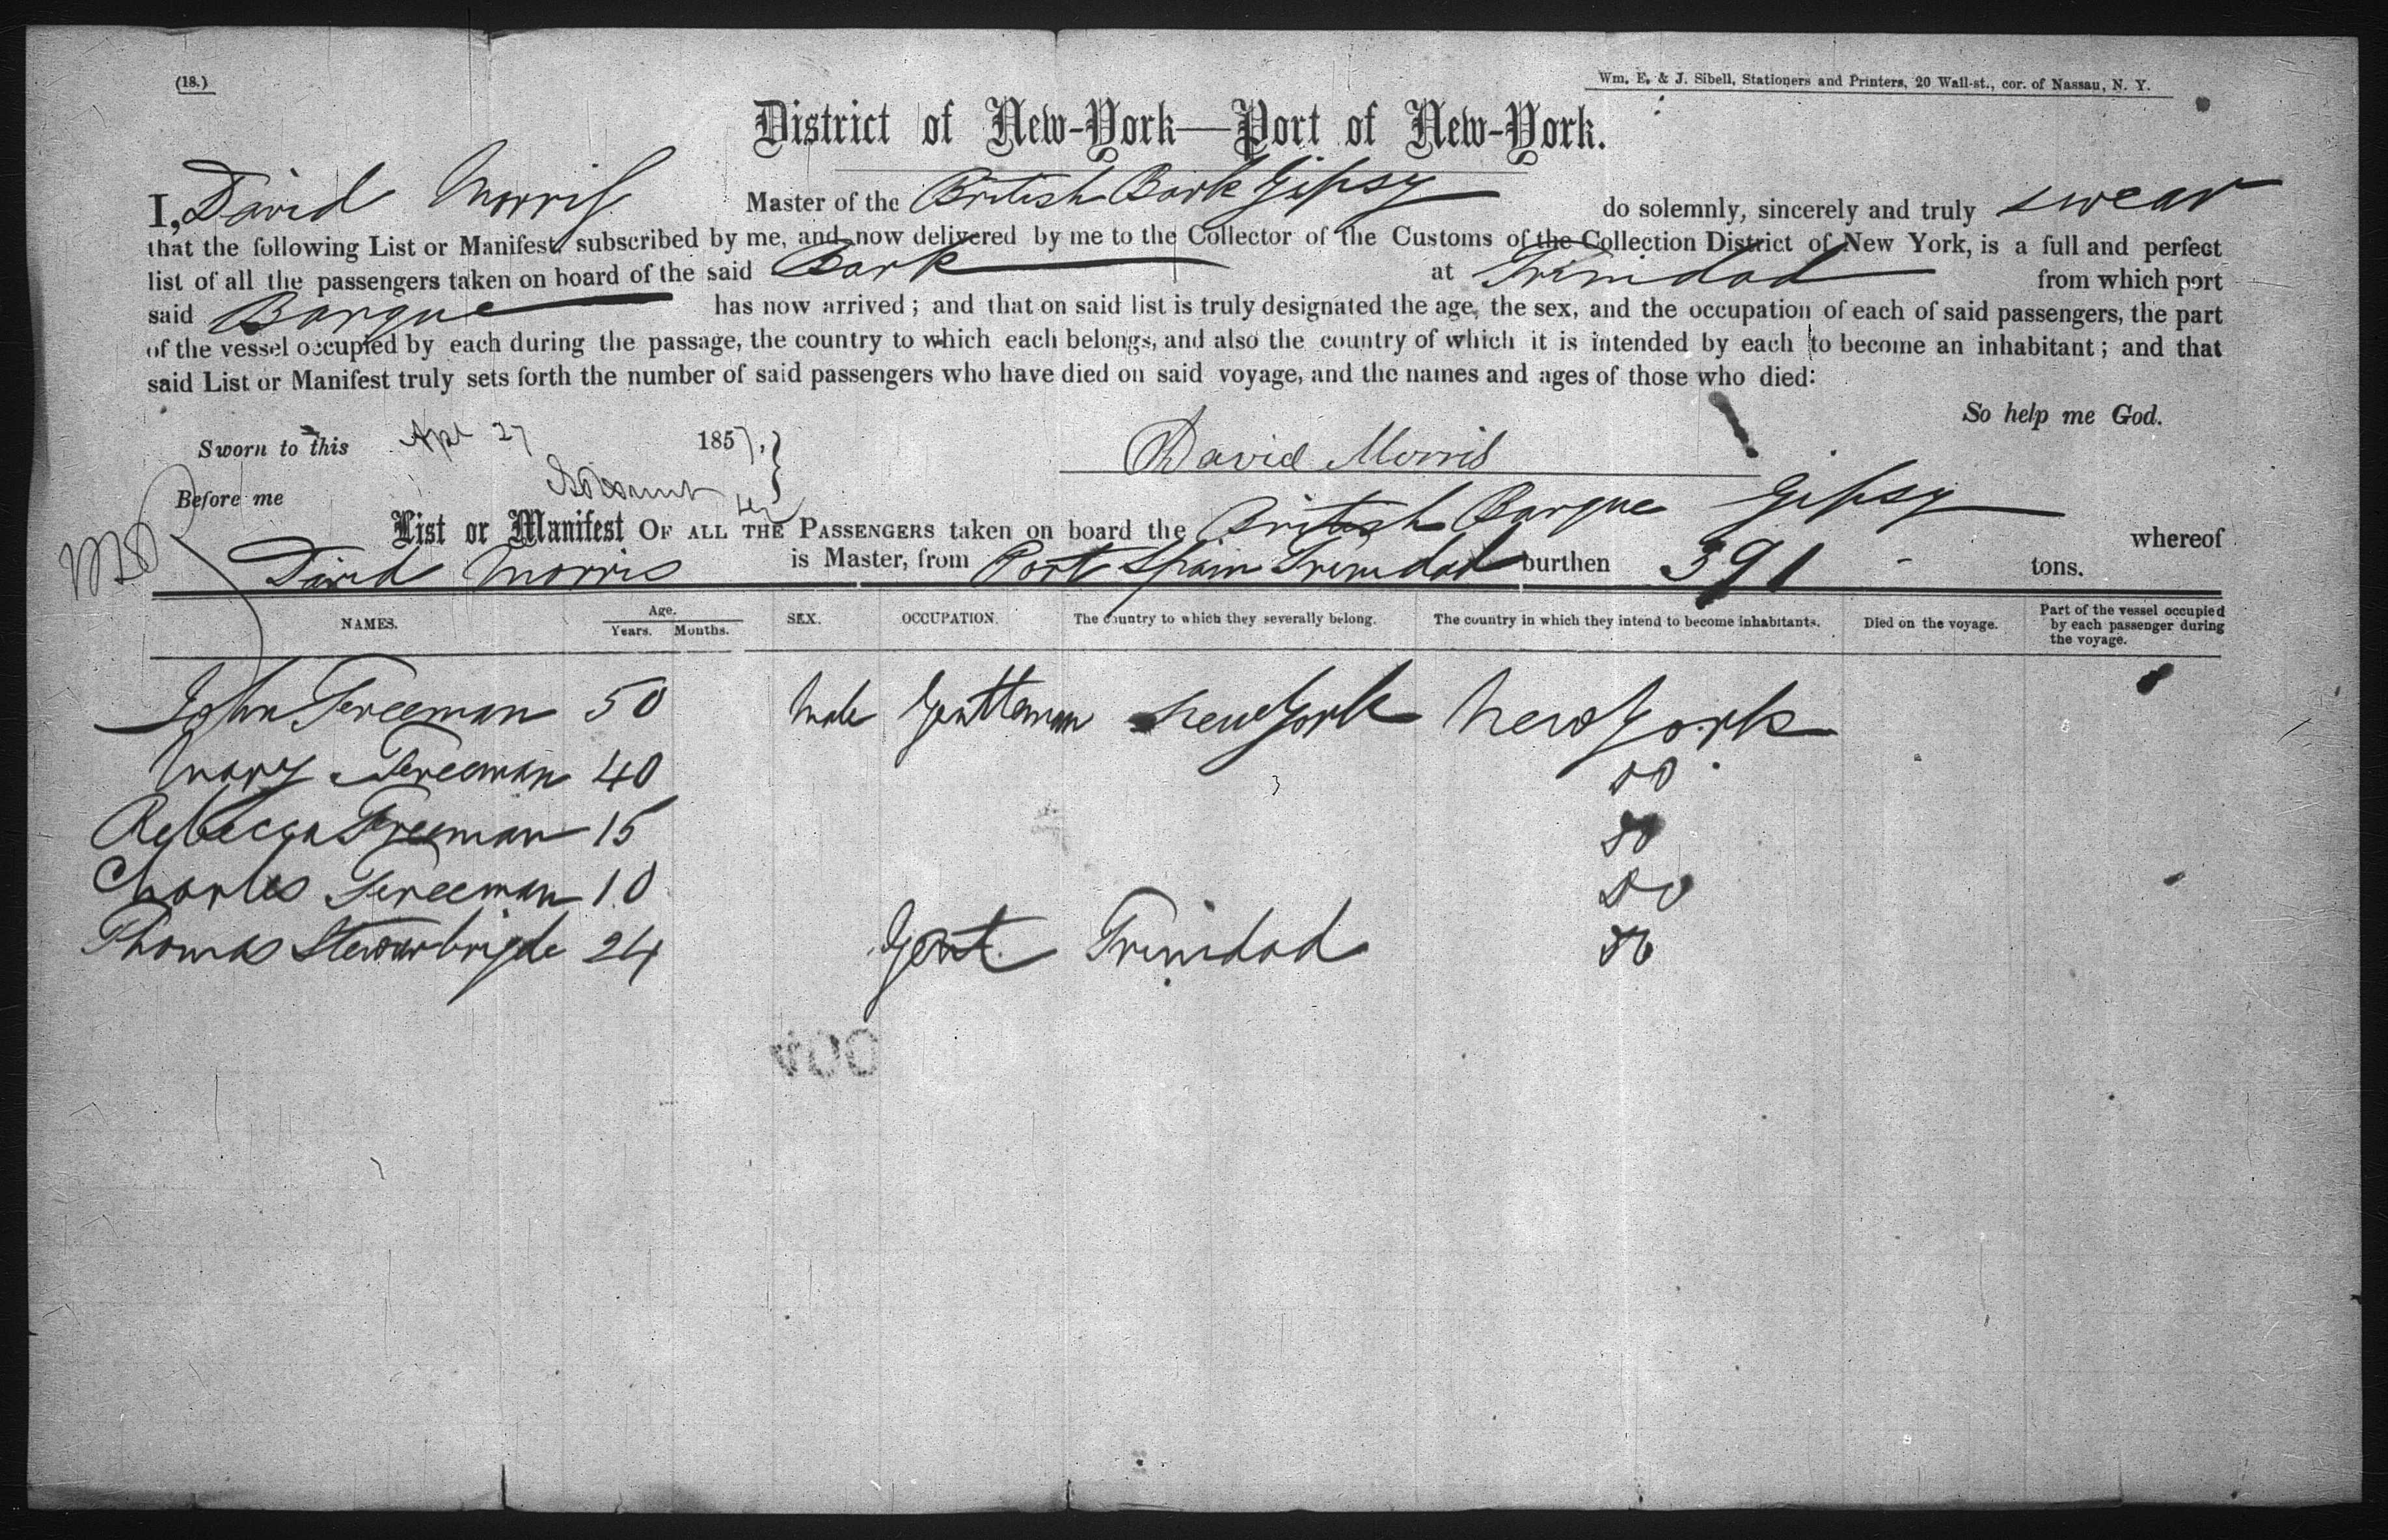 (18.)
Wm. E. & J. Sibell, Stationers and Printers, 20 Wall-st., cor. of Nassau, N. Y.
District of New-York—Port of New-York.
I, David Morris Master of the British Bark Gipsy do solemnly, sincerely and truly swear
that the following List or Manifest, subscribed by me, and now delivered by me to the Collector of the Customs of the Collection District of New York, is a full and perfect
list of all the passengers taken on board of the said Bark at Trinidad from which port
said Barque has now arrived; and that on said list is truly designated the age, the sex, and the occupation of each of said passengers, the part
of the vessel occupied by each during the passage, the country to which each belongs, and also the country of which it is intended by each to become an inhabitant; and that
said List or Manifest truly sets forth the number of said passengers who have died on said voyage, and the names and ages of those who died:
So help me God.
Sworn to this Apl 27 1857.
David Morris
Before me
List or Manifest OF ALL THE PASSENGERS taken on board the British Barque Gipsy whereof
David Morris is Master, from Port Spain Trinidad burthen 391 tons.
NAMES. Age. Years. Months. SEX. OCCUPATION. The country to which they severally belong. The country in which they intend to become inhabitants. Died on the voyage. Part of the vessel occupied by each passenger during the voyage.
John Freeman 50 Male Gentleman New York New York
Mary Freeman 40 Do
Rebecca Freeman 15 Do
Charles Freeman 10 Do
Thomas 24 Gent. Trinidad Do